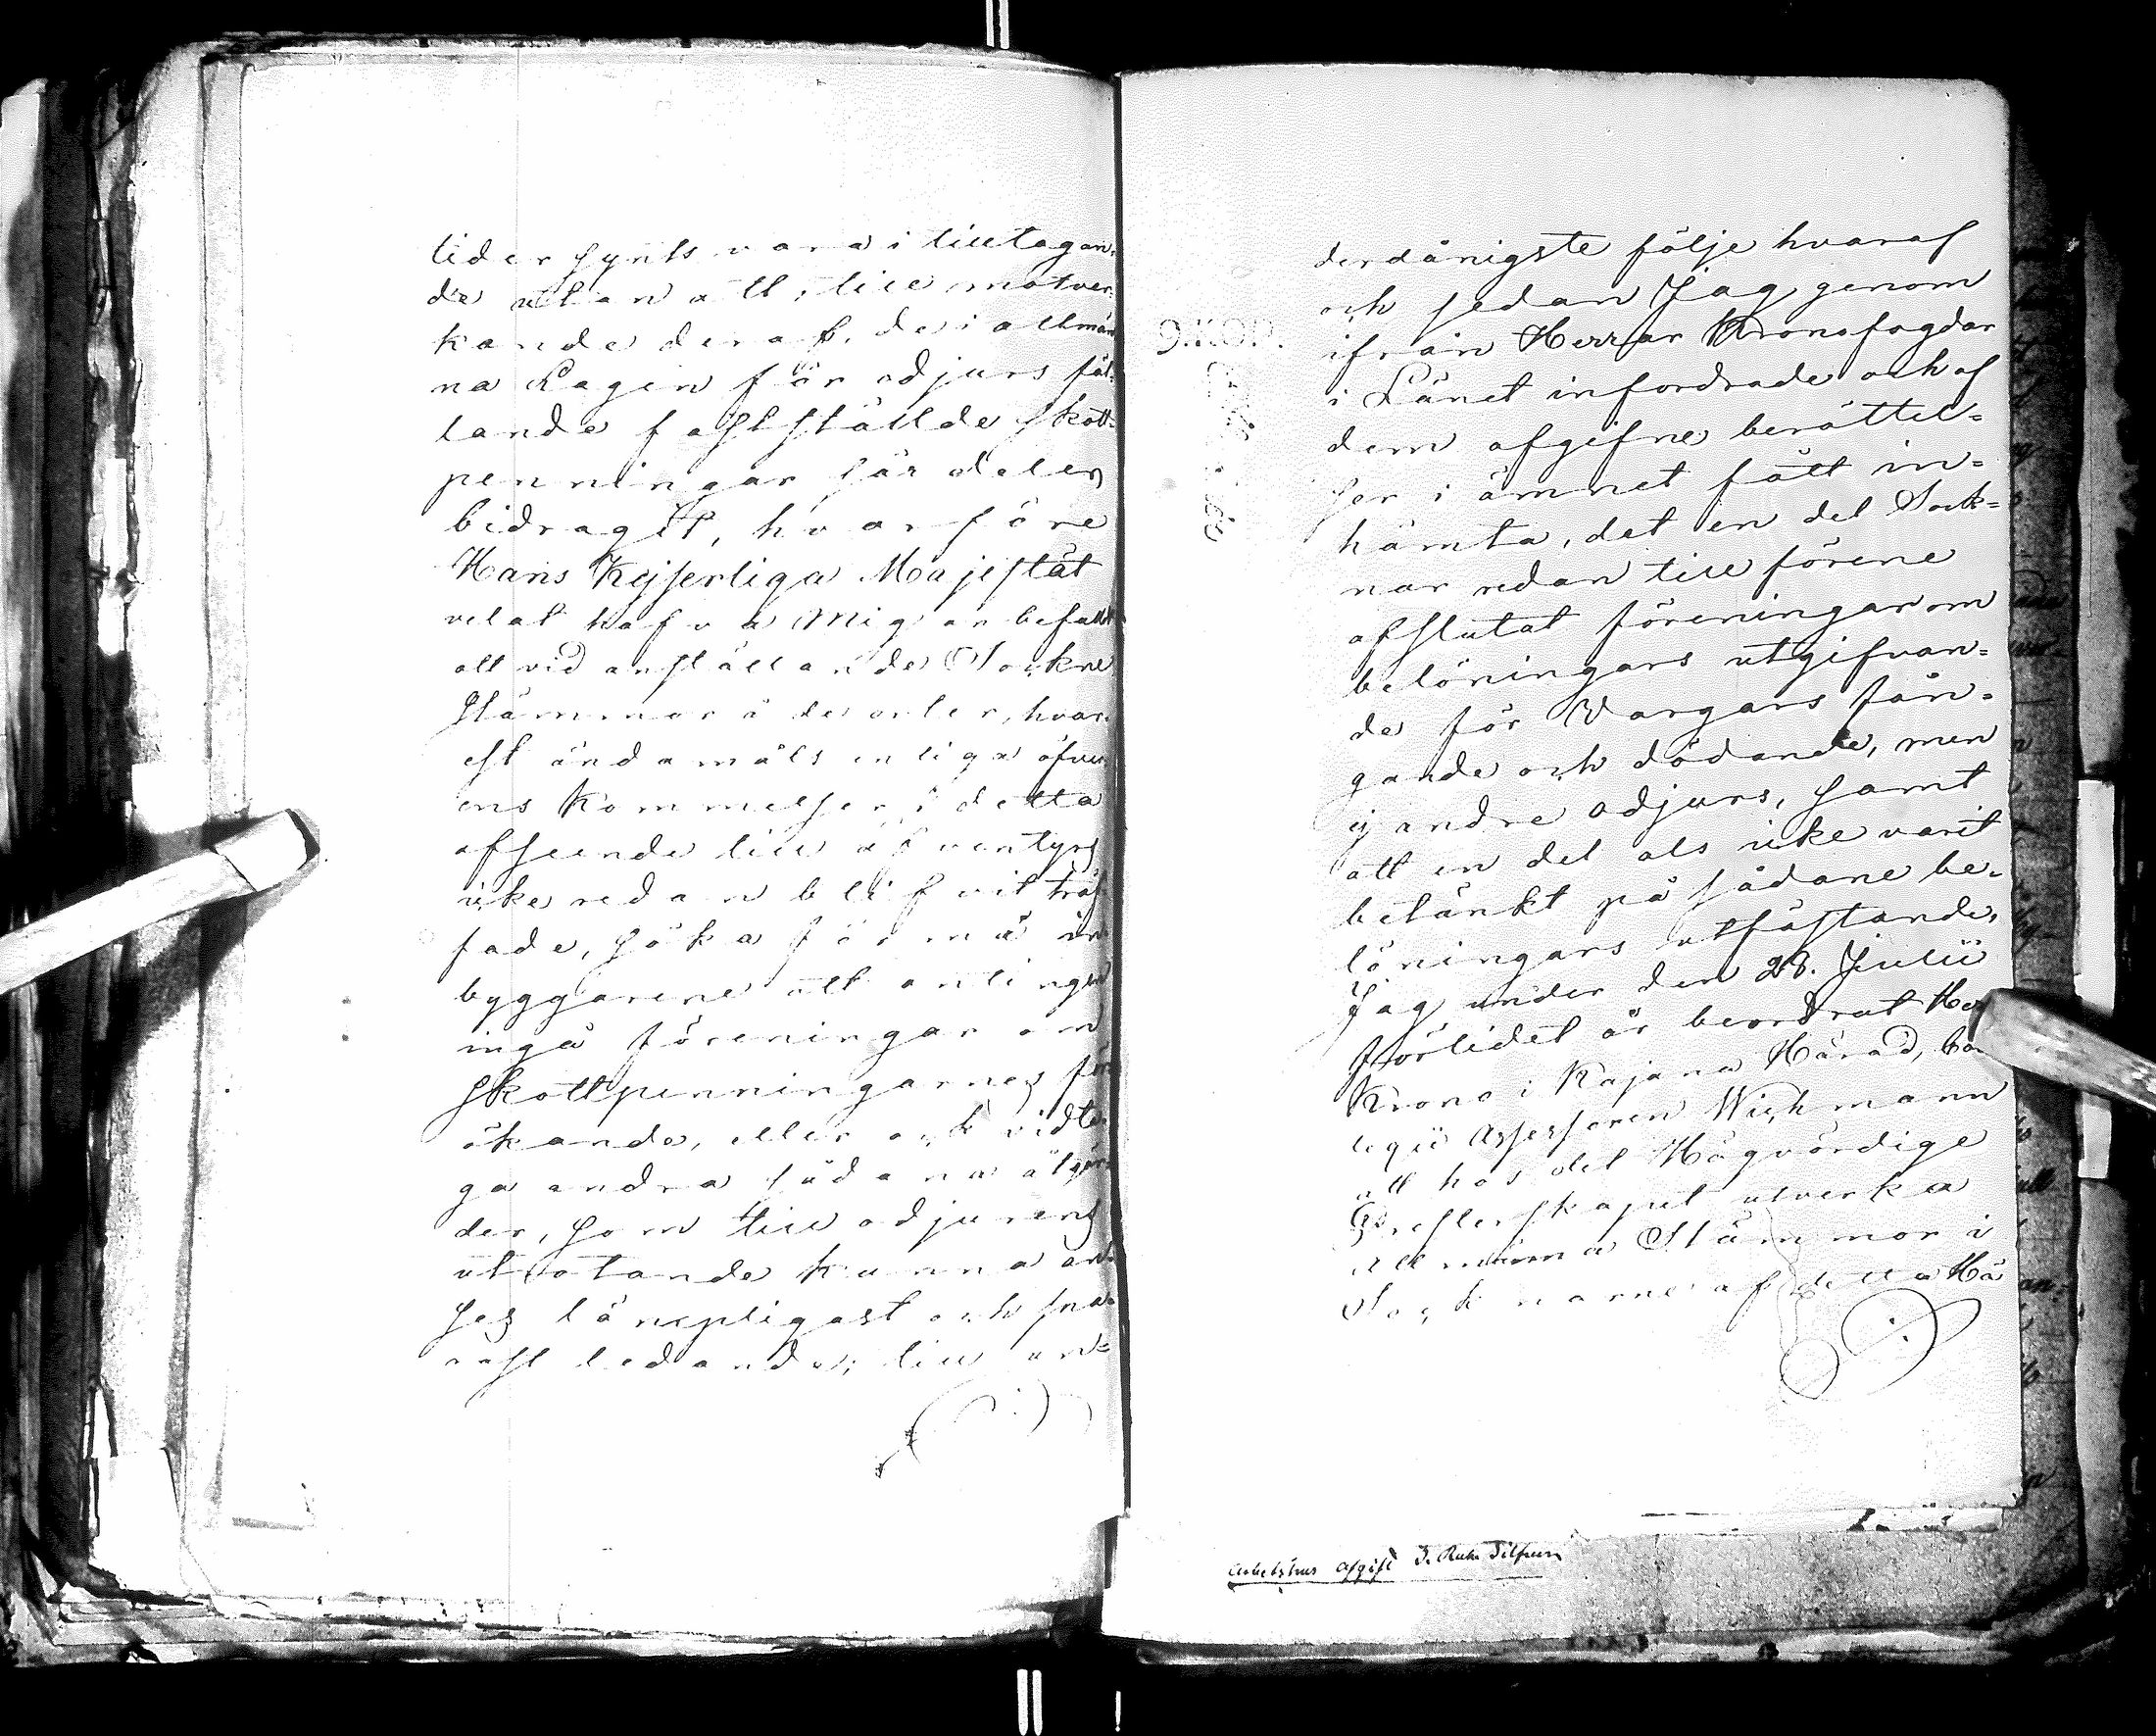 tider synts vara i tilltagan-
de utan att, till motver-
kande deraf, de i allmän
na Lagen för odjurs fäl-
lande fastställde skott-
penningar särdeles
bidragit, hvarföre
Hans Kejserliga Majestät
velat hafva Mig anbefallt
att vid anställande Sockne
Stämmor å de orter, hvar-
est ändamålsenliga öfver-
ens kommelser i detta
afseende till äfventyrs
icke redan blifvit träf-
fade, söka förmå in-
byggarene att antingen
ingå föreningar om
Skottpenningarnes för
ökande, eller ock vidta-
ga andra sådana åtgär-
der, som till odjurens
utrotande kunna an-
ses lämpligast och sna-
rast ledande; till un-
derdånigste följe hvaraf
och sedan Jag genom
ifrån Herrar Kronofogdar
i Länet infordrade och af
dem afgifne berättel-
ser i ämnet fått in-
hämta, det en del Sock-
nar redan till förene
afslutat föreningar om
belöningars utgifvan-
de för Vargars fån-
gande och dödande, men
ej andre odjurs, samt
att en del als icke varit
betänkt på sådane be-
löningars utfästande,
Jag under den 28. Julii
förlidet år beordrat Her
Krono i Kajana Härad,
legii Assessoren Wichmann
att hos det Högvördige
Presterskapet utverka
Allmänna Stämmor i
Socknarne af detta Hä
9. KOP.
Arbetshus Afgift 3. Rub. Silfver